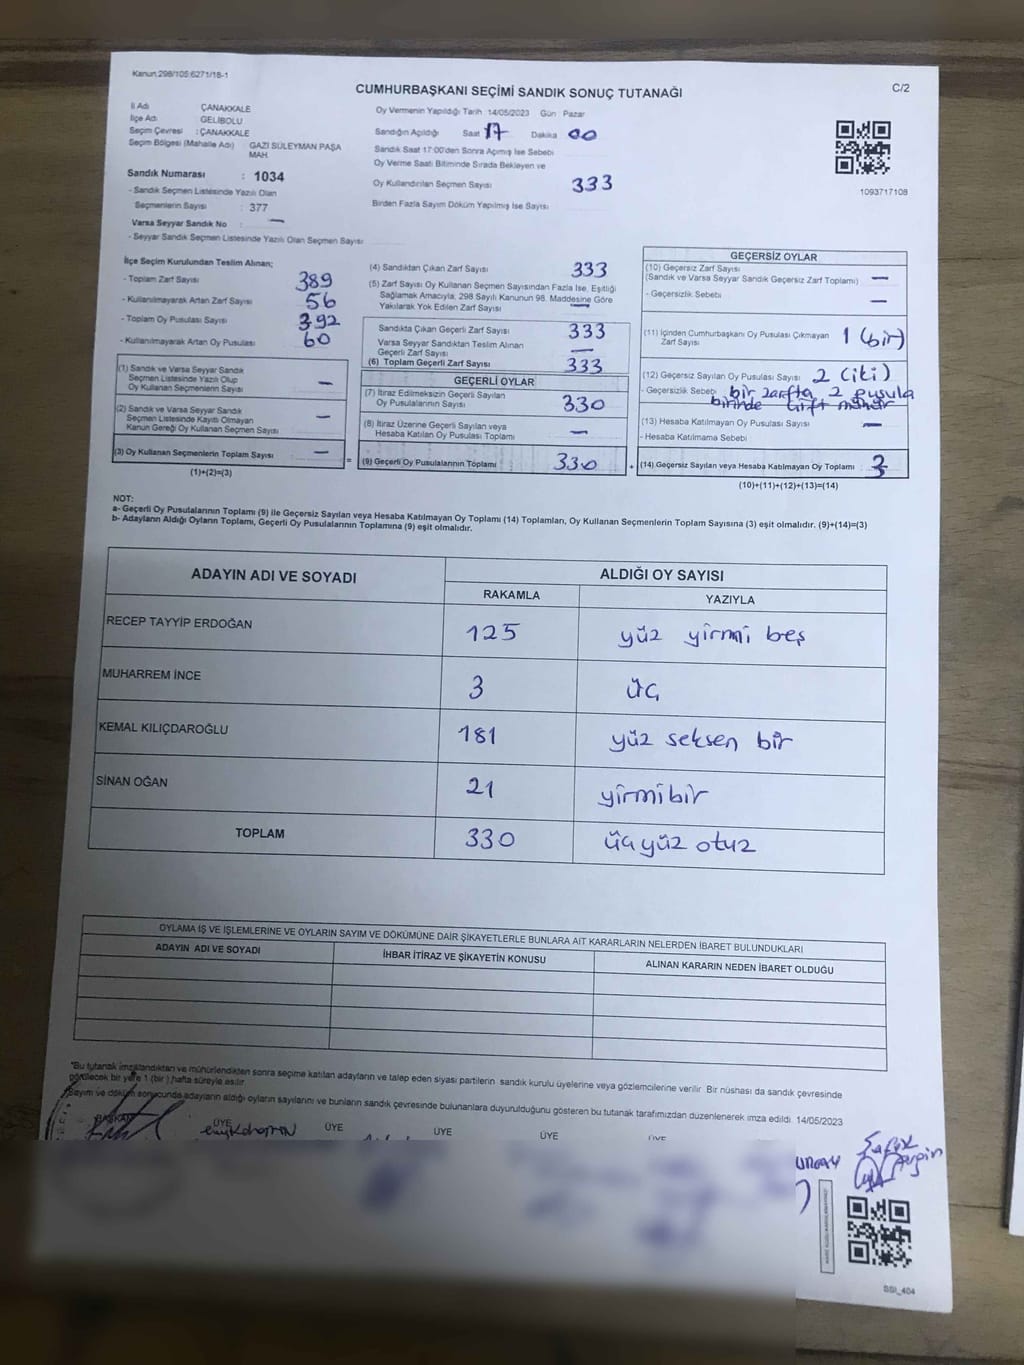 Kanun:298/105;6271/18-1
C/2
CUMHURBAŞKANI SEÇİMİ SANDIK SONUÇ TUTANAĞI
İl Adı : ÇANAKKALE
İlçe Adı : GELİBOLU
Seçim Çevresi : ÇANAKKALE
Seçim Bölgesi (Mahalle Adı) : GAZİ SÜLEYMAN PAŞA MAH.
Sandık Numarası : 1034
- Sandık Seçmen Listesinde Yazılı Olan
Seçmenlerin Sayısı : 377
Varsa Seyyar Sandık No : —
- Seyyar Sandık Seçmen Listesinde Yazılı Olan Seçmen Sayısı
Oy Vermenin Yapıldığı Tarih : 14/05/2023 Gün : Pazar
Sandığın Açıldığı Saat 17 Dakika 00
Sandık Saat 17:00'den Sonra Açımış İse Sebebi
Oy Verme Saati Bitiminde Sırada Bekleyen ve
Oy Kullandırılan Seçmen Sayısı 333
Birden Fazla Sayım Döküm Yapılmış İse Sayısı
1093717108
İlçe Seçim Kurulundan Teslim Alınan;
- Toplam Zarf Sayısı 389
- Kullanılmayarak Artan Zarf Sayısı 56
- Toplam Oy Pusulası Sayısı 392
- Kullanılmayarak Artan Oy Pusulası 60
(1) Sandık ve Varsa Seyyar Sandık
Seçmen Listesinde Yazılı Olup
Oy Kullanan Seçmenlerin Sayısı —
(2) Sandık ve Varsa Seyyar Sandık
Seçmen Listesinde Kayıtlı Olmayan
Kanun Gereği Oy Kullanan Seçmen Sayısı —
(3) Oy Kullanan Seçmenlerin Toplam Sayısı —
(1)+(2)=(3)
(4) Sandıktan Çıkan Zarf Sayısı 333
(5) Zarf Sayısı Oy Kullanan Seçmen Sayısından Fazla İse, Eşitliği
Sağlamak Amacıyla; 298 Sayılı Kanunun 98. Maddesine Göre
Yakılarak Yok Edilen Zarf Sayısı —
Sandıkta Çıkan Geçerli Zarf Sayısı 333
Varsa Seyyar Sandıktan Teslim Alınan
Geçerli Zarf Sayısı —
(6) Toplam Geçerli Zarf Sayısı 333
GEÇERLİ OYLAR
(7) İtiraz Edilmeksizin Geçerli Sayılan
Oy Pusulalarının Sayısı 330
(8) İtiraz Üzerine Geçerli Sayılan veya
Hesaba Katılan Oy Pusulası Toplamı —
= (9) Geçerli Oy Pusulalarının Toplamı 330 +
GEÇERSİZ OYLAR
(10) Geçersiz Zarf Sayısı
(Sandık ve Varsa Seyyar Sandık Geçersiz Zarf Toplamı) —
- Geçersizlik Sebebi —
(11) İçinden Cumhurbaşkanı Oy Pusulası Çıkmayan
Zarf Sayısı 1 (bir)
(12) Geçersiz Sayılan Oy Pusulası Sayısı 2 (iki)
- Geçersizlik Sebebi bir zarfta 2 pusula
birinde Çift mühür
(13) Hesaba Katılmayan Oy Pusulası Sayısı —
- Hesaba Katılmama Sebebi
(14) Geçersiz Sayılan veya Hesaba Katılmayan Oy Toplamı : 3
(10)+(11)+(12)+(13)=(14)
NOT:
a- Geçerli Oy Pusulalarının Toplamı (9) ile Geçersiz Sayılan veya Hesaba Katılmayan Oy Toplamı (14) Toplamları, Oy Kullanan Seçmenlerin Toplam Sayısına (3) eşit olmalıdır. (9)+(14)=(3)
b- Adayların Aldığı Oyların Toplamı, Geçerli Oy Pusulalarının Toplamına (9) eşit olmalıdır.
ADAYIN ADI VE SOYADI
ALDIĞI OY SAYISI
RAKAMLA YAZIYLA
RECEP TAYYİP ERDOĞAN 125 yüz yirmi beş
MUHARREM İNCE 3 üç
KEMAL KILIÇDAROĞLU 181 yüz seksen bir
SİNAN OĞAN 21 yirmibir
TOPLAM 330 üçyüz otuz
OYLAMA İŞ VE İŞLEMLERİNE VE OYLARIN SAYIM VE DÖKÜMÜNE DAİR ŞİKAYETLERLE BUNLARA AİT KARARLARIN NELERDEN İBARET BULUNDUKLARI
ADAYIN ADI VE SOYADI İHBAR İTİRAZ VE ŞİKAYETİN KONUSU ALINAN KARARIN NEDEN İBARET OLDUĞU
*Bu tutanak imzalandıktan ve mühürlendikten sonra seçime katılan adayların ve talep eden siyasi partilerin sandık kurulu üyelerine veya gözlemcilerine verilir. Bir nüshası da sandık çevresinde
görülecek bir yere 1 (bir) hafta süreyle asılır.
Sayım ve döküm sonucunda adayların aldığı oyların sayılarını ve bunların sandık çevresinde bulunanlara duyurulduğunu gösteren bu tutanak tarafımızdan düzenlenerek imza edildi. 14/05/2023
BAŞKAN ÜYE ÜYE ÜYE ÜYE ÜYE
SSI_404